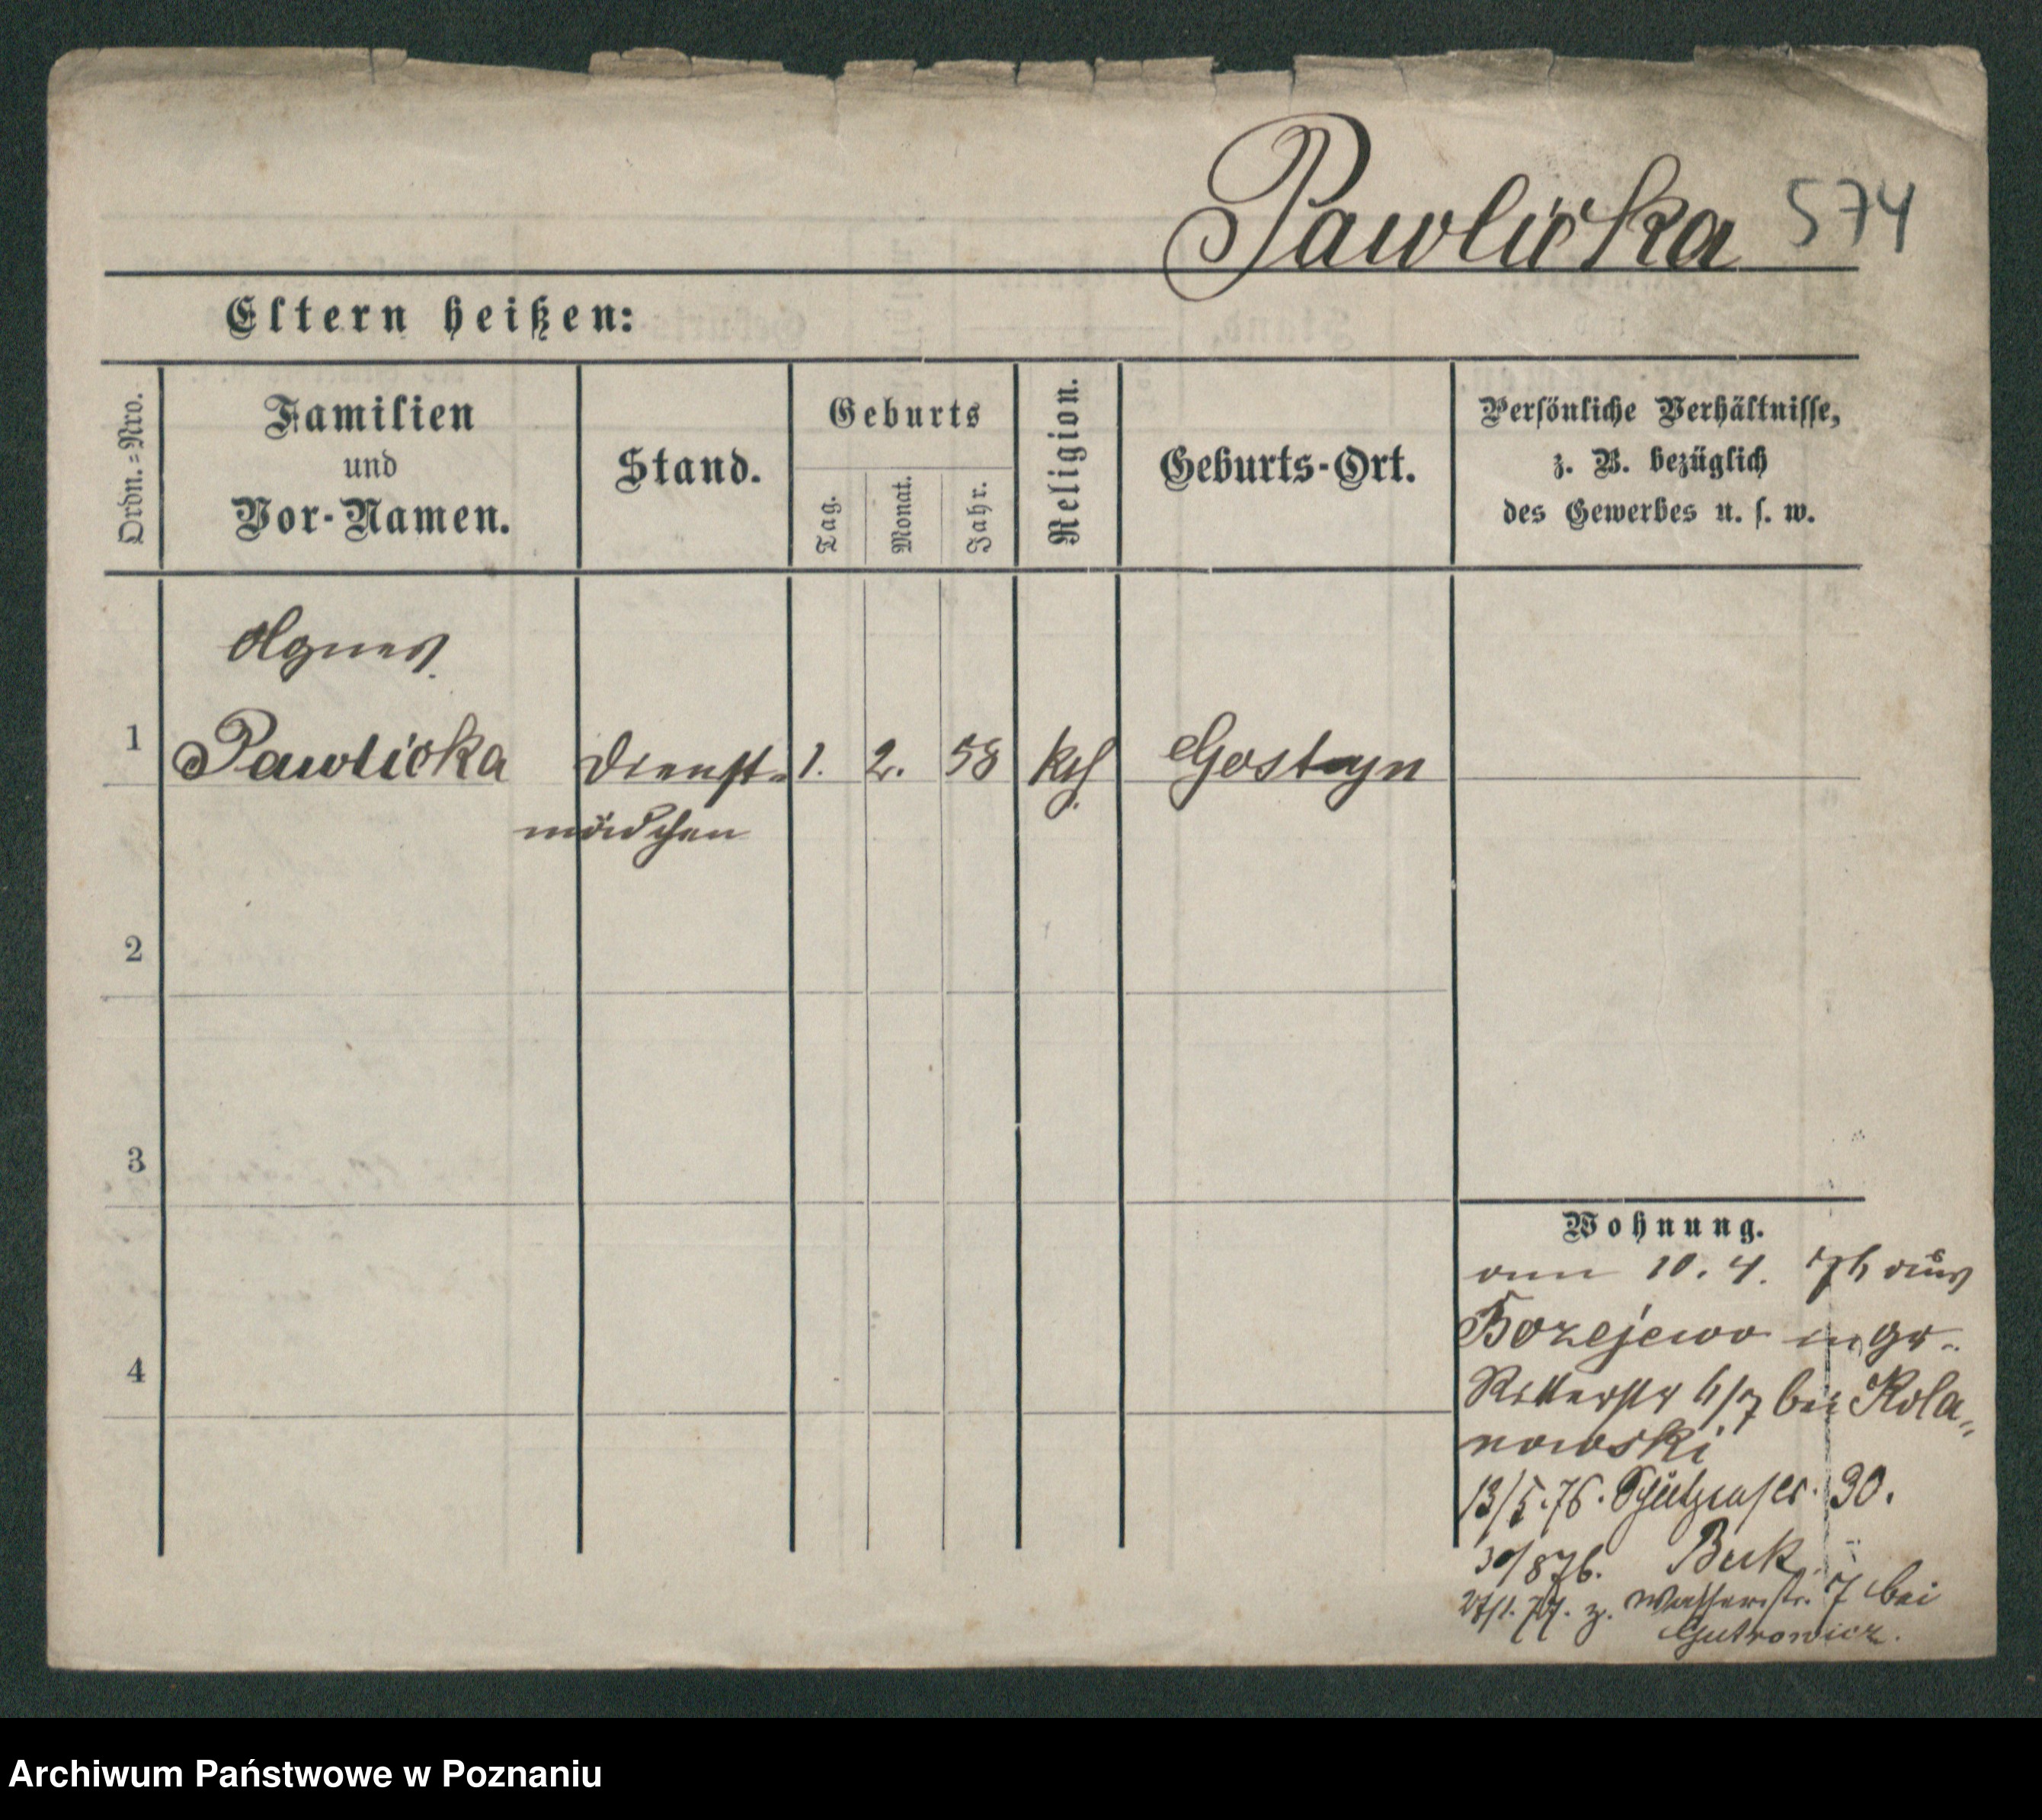 Pawlicka 574
Eltern heißen:
Ordn.=Nro.
Familien
und
Vor-Namen.
Stand.
Geburts
Tag.
Monat.
Jahr.
Religion.
Geburts-Ort.
Persönliche Verhältnisse,
z. B. bezüglich
des Gewerbes u. s. w.
Agnes
1 Pawlicka Dienst- 1. 2. 58 kth Gostyn
mädchen
2
3
4
Wohnung.
10. 4. 76 aus
Bozejewo gr.
Ritterstr 6/7 bei Kola-
nowski
13/5.76. Schützenstr. 30.
30/8 76. Buk
77. z. Wasserstr. 7 bei
Gutrowicz.
Archiwum Państwowe w Poznaniu